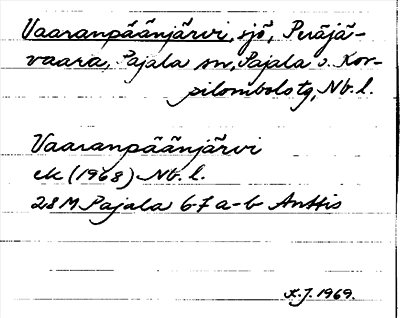 Vaaranpäänjärvi, sjö, Peräjä-
vaara, Pajala sn, Pajala o. Kor-
pilombolo tg, Nb. l.
Vaaranpäänjärvi
ek (1968) Nb. l.
28M Pajala 6-7 a-b Anttis
1969.